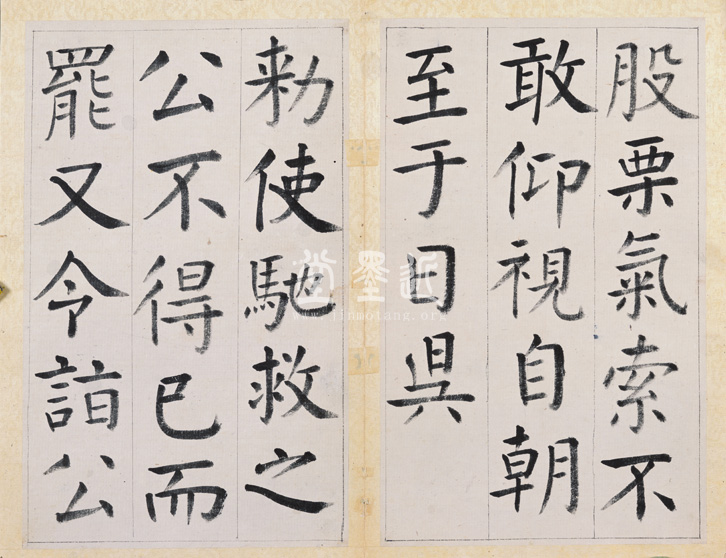 股栗氣索不
敢仰視自朝
至于日昃
勑使馳救之
公不得已而
罷又令詣公
近墨堂
www.jinmotang.org